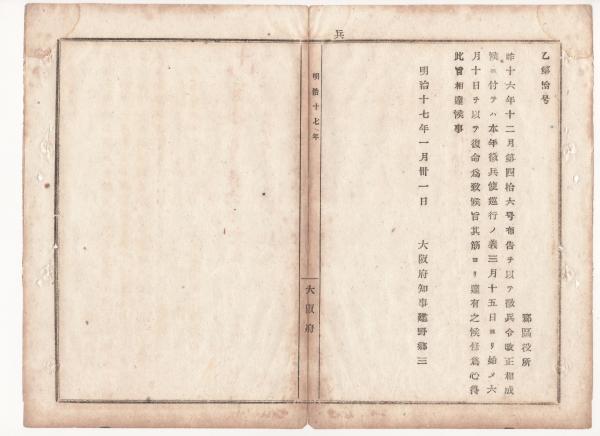 乙第拾号
郡區役所
昨十六年十二月第四拾六号布告ヲ以テ徵兵令改正相成
候ニ付テハ本年徵兵使巡行ノ義三月十五日ヨリ始メ六
月十日ヲ以テ復命爲致候旨其筋ヨリ達有之候條爲心得
此旨相達候事
明治十七年一月卅一日 大阪府知事建野鄕三
兵
明治十七年
大阪府